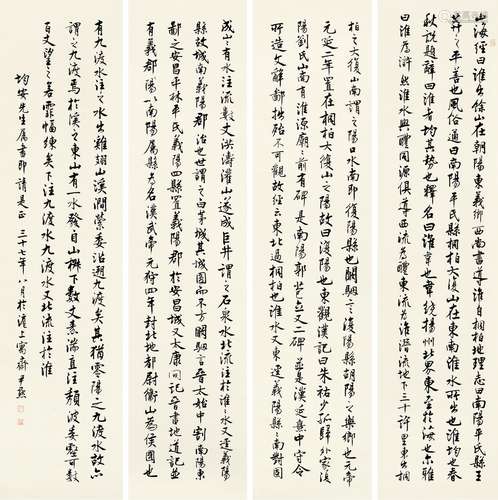 山海經曰淮出餘山在朝陽東義鄉西尚書導淮自桐柏地理志曰南陽平氏縣王
莽之平善也風俗通曰南陽平氏縣桐柏大復山在東南淮水所出也淮均也春
秋說題辭曰淮者均其勢也釋名曰淮韋也韋繞揚州北界東至於海也爾雅
曰淮為滸然淮水與醴同源俱導西流為醴東流為淮潛流地下三十許里東出桐
柏之大復山南謂之陽口水南即復陽縣也闞駰言復陽縣胡陽之樂鄉也元帝
元延二年置在桐柏大復山之陽故曰復陽也東觀漢記曰朱祐少孤歸外家復
陽劉氏山南有淮源廟廟前有碑是南陽郭苞立又二碑並是漢延熹中守令
所造文辭鄙拙殆不可觀故經云東北過桐柏也淮水又東逕義陽縣縣南對固
成山山有水注流數丈洪濤灌山遂成巨井謂之石泉水北流注於淮淮水又逕義陽
縣故城南義陽郡治也世謂之白茅城其城圓而不方闞駰言晉太始中割南陽東
鄙之安昌平林平氏義陽四縣置義陽郡於安昌城又太康記晉書地道記並
有義郡陽以南陽屬縣為名漢武帝元狩四年封北地都尉衛山為侯國也
有九渡水注之水出雞翅山溪澗縈委沿溯九渡矣其猶零陽之九渡水故亦
謂之九渡焉於溪之東山有一水發自山椒下數丈素湍直注頹波委壑可數
百丈望之若霏幅練矣下注九渡水九渡水又北流注於淮
均安先生屬書即請是正 三十七年八月於滬上寓齋 尹默